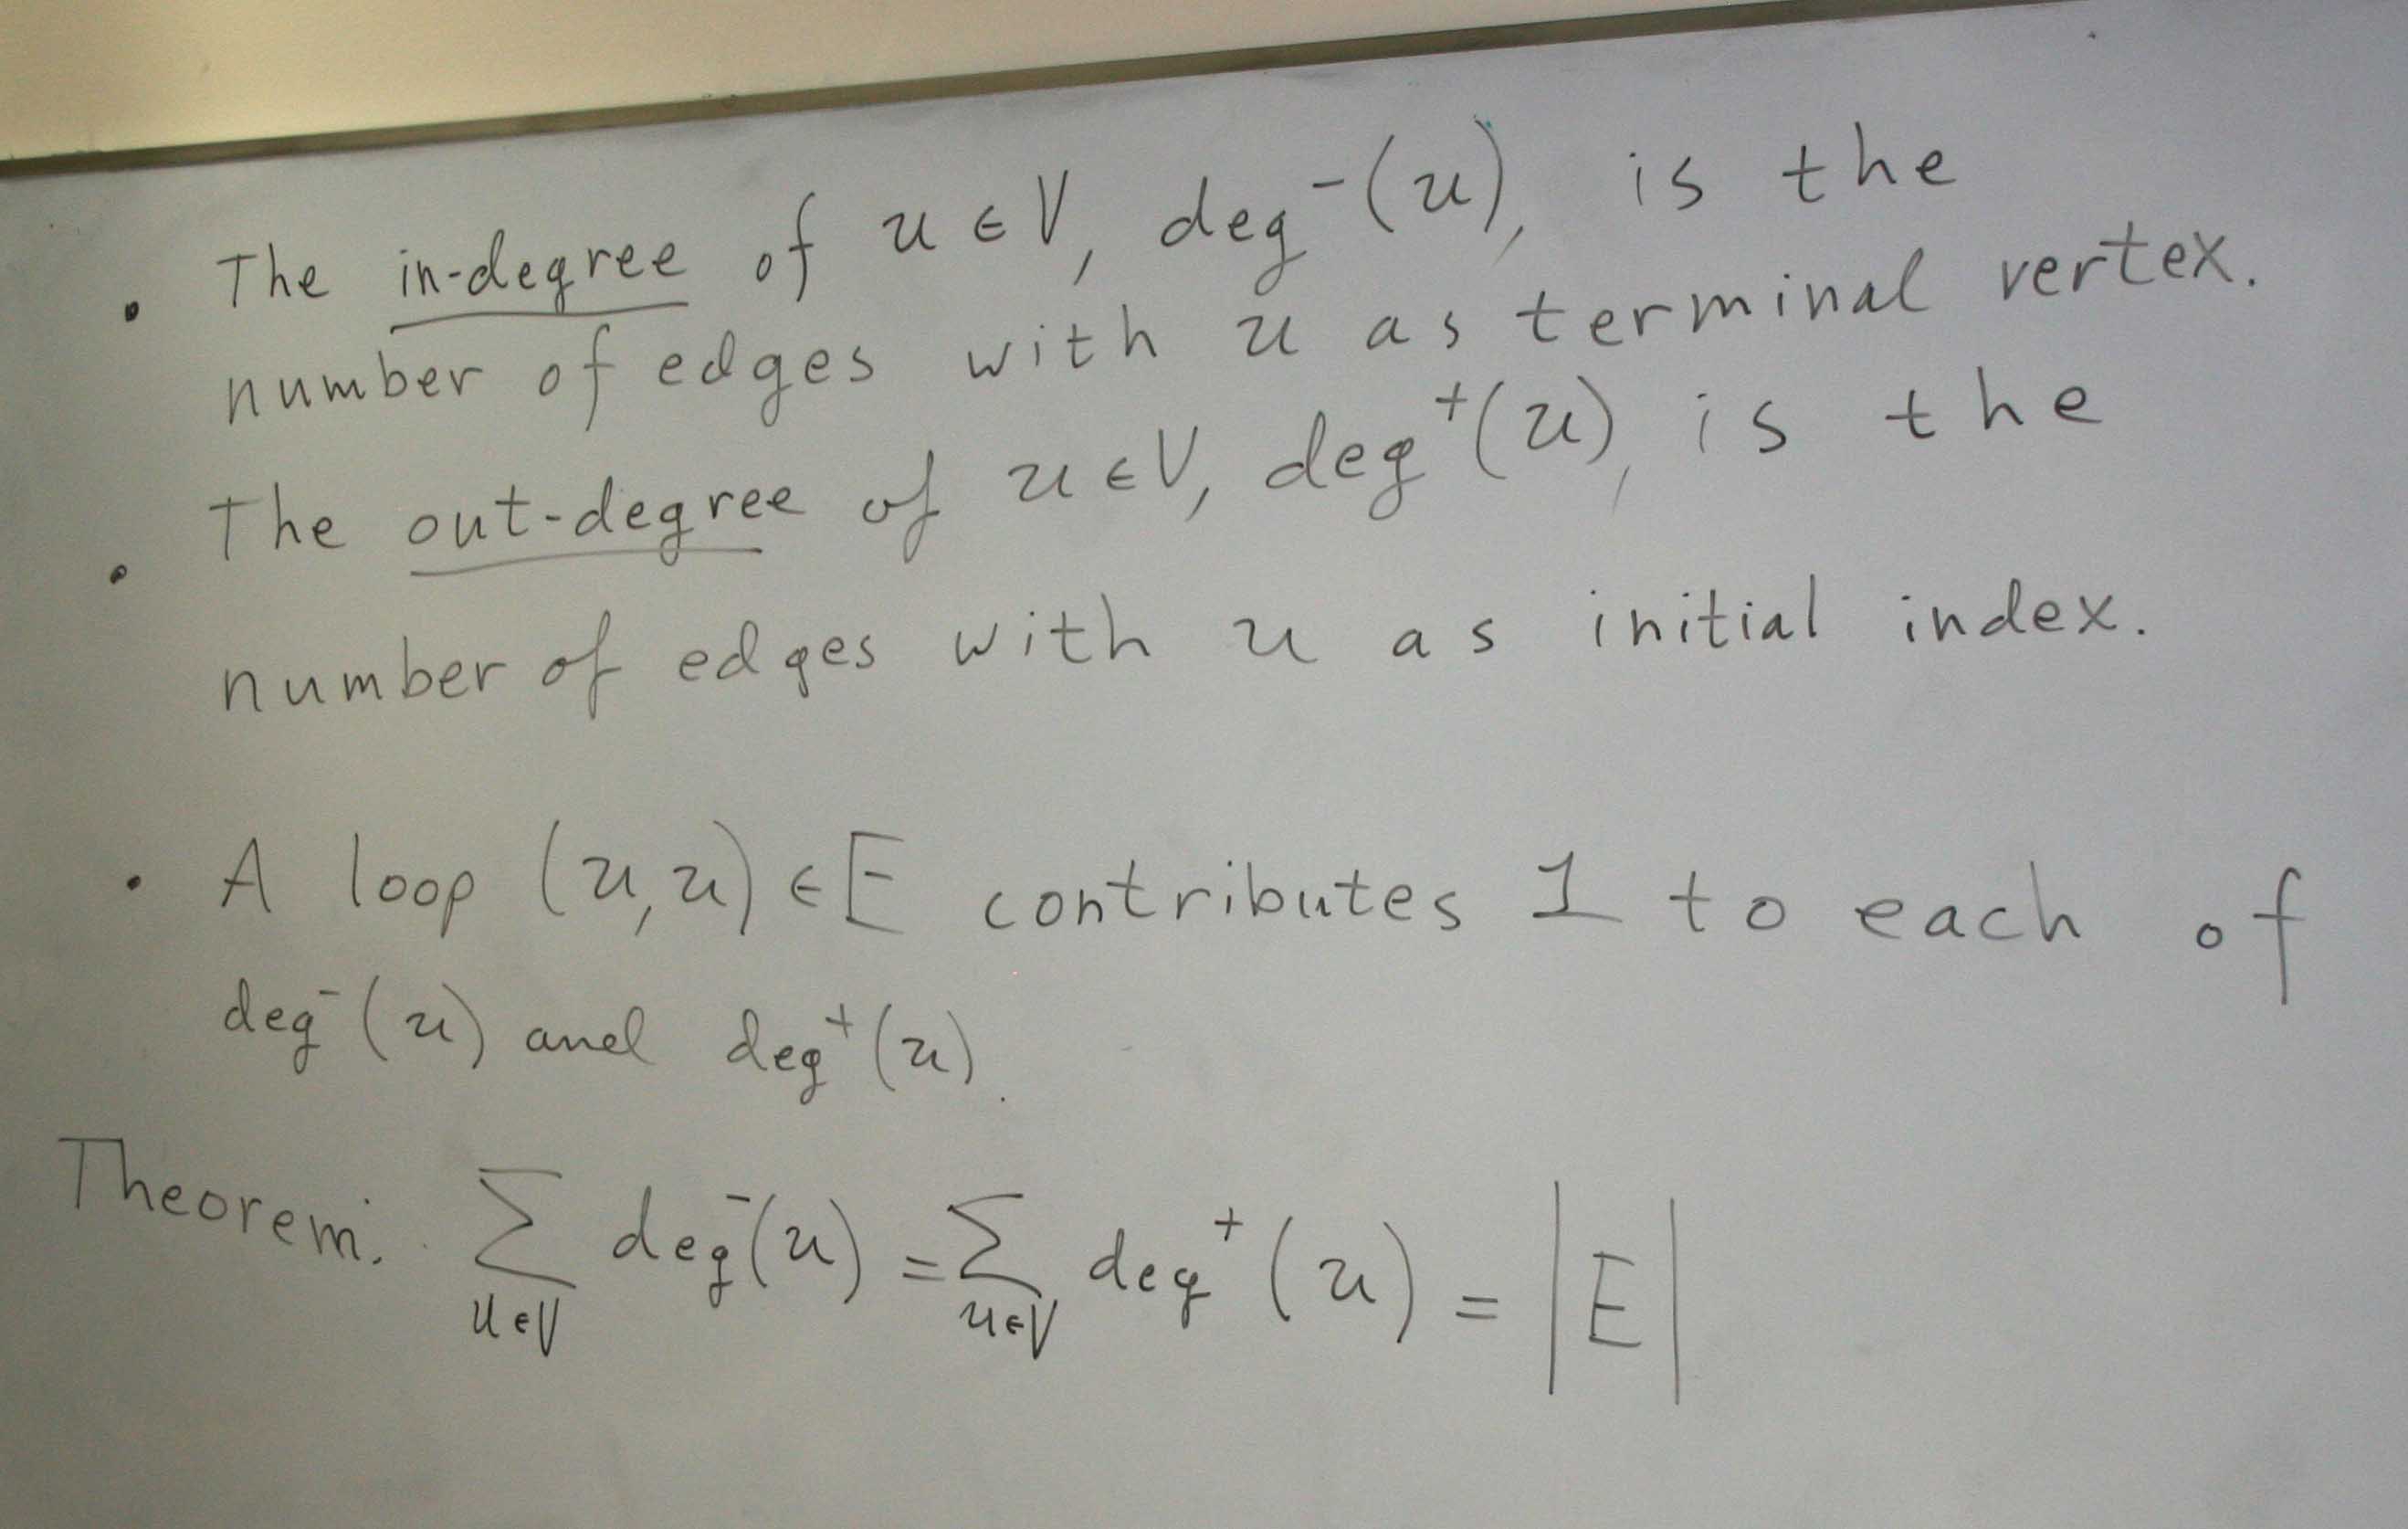 • The in-degree of u ∈ V, deg⁻(u), is the
number of edges with u as terminal vertex.
• The out-degree of u ∈ V, deg⁺(u), is the
number of edges with u as initial index.
• A loop (u,u) ∈ E contributes 1 to each of
deg⁻(u) and deg⁺(u).
Theorem. ∑_{u∈V} deg⁻(u) = ∑_{u∈V} deg⁺(u) = |E|